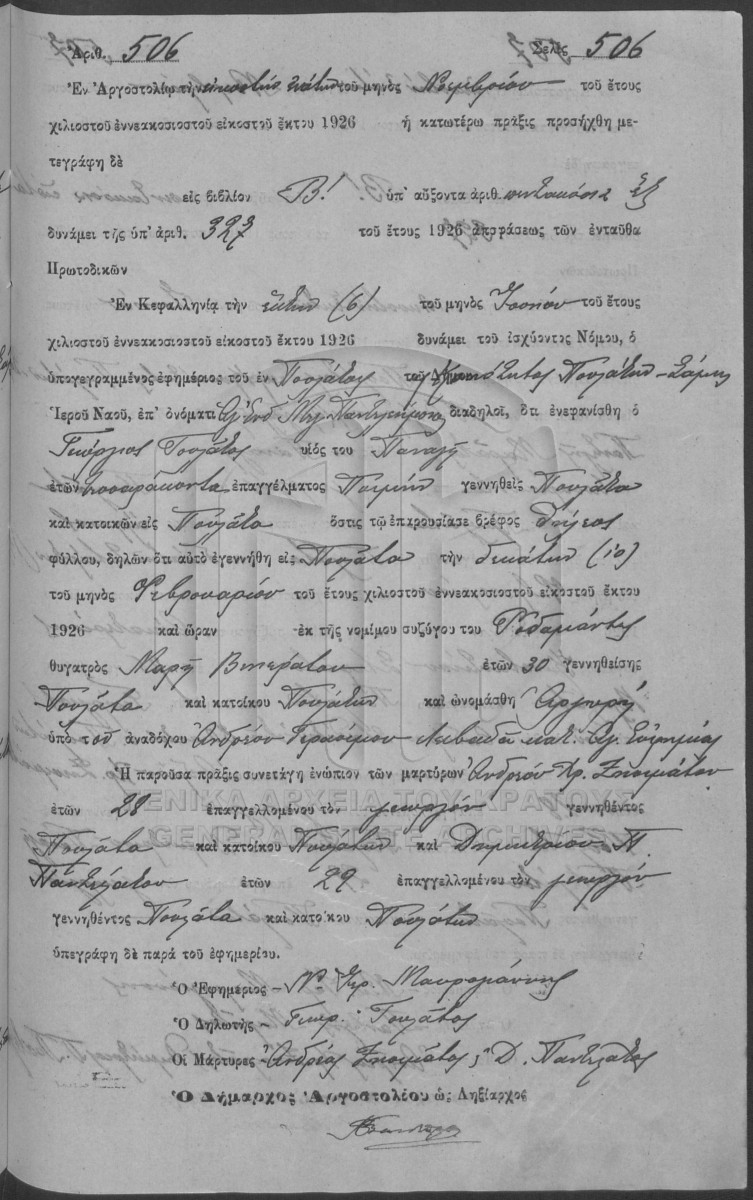 Ἀριθ. 506 Σελὶς 506
Ἐν Ἀργοστολίῳ τὴν εἰκοστήν ἑκάτην τοῦ μηνὸς Νοεμβρίου τοῦ ἔτους
χιλιοστοῦ ἐννεακοσιοστοῦ εἰκοστοῦ ἕκτου 1926 ἡ κατωτέρω πρᾶξις προσήχθη με-
τεγράφη δὲ
εἰς βιβλίον Β! ὑπ' αὔξοντα ἀριθ. πεντακόσια ἕξ
δυνάμει τῆς ὑπ' ἀριθ. 327 τοῦ ἔτους 1926 ἀποφάσεως τῶν ἐνταῦθα
Πρωτοδικῶν
Ἐν Κεφαλληνίᾳ τὴν ἕκτην (6) τοῦ μηνὸς Ἰουνίου τοῦ ἔτους
χιλιοστοῦ ἐννεακοσιοστοῦ εἰκοστοῦ ἕκτου 1926 δυνάμει τοῦ ἰσχύοντος Νόμου, ὁ
ὑπογεγραμμένος ἐφημέριος τοῦ ἐν Πουλάτοις Κοινότητος Πουλάτων - Σάμης
Ἱεροῦ Ναοῦ, ἐπ' ὀνόματι Ἁγ. Μεγ. Παντελεήμονος διαδηλοῖ, ὅτι ἐνεφανίσθη ὁ
Γεώργιος Γουλάτος υἱὸς του Παναγῆ
ἐτῶν τεσσαράκοντα ἐπαγγέλματος Ποιμήν γεννηθεὶς Πουλάτα
καὶ κατοικῶν εἰς Πουλάτα ὅστις τῷ ἐπαρουσίασε βρέφος θήλεος
φύλλου, δηλῶν ὅτι αὐτὸ ἐγεννήθη εἰς Πουλάτα τὴν δεκάτην (10)
τοῦ μηνὸς Φεβρουαρίου τοῦ ἔτους χιλιοστοῦ ἐννεακοσιοστοῦ εἰκοστοῦ ἕκτου
1926 καὶ ὥραν ἐκ τῆς νομίμου συζύγου του Ροδαμάνθης
θυγατρὸς Μαρῆ Βικεράτου ἐτῶν 30 γεννηθείσης
Πουλάτα καὶ κατοίκου Πουλάτων καὶ ὠνομάσθη Ἀργυρή
ὑπὸ τοῦ ἀναδόχου Ἀνδρέου Γερασίμου Λιβαδᾶ κατ. Ἁγ. Εὐφημίας
Ἡ παροῦσα πρᾶξις συνετάγη ἐνώπιον τῶν μαρτύρων Ἀνδρέου Χρ.
ἐτῶν 28 ἐπαγγελλομένου τὸν γεωργόν γεννηθέντος
Πουλάτα καὶ κατοίκου Πουλάτων καὶ Δημητρίου Π.
Παντελάτου ἐτῶν 29 ἐπαγγελλομένου τὸν γεωργόν
γεννηθέντος Πουλάτα καὶ κατοίκου Πουλάτων
ὑπεγράφη δὲ παρὰ τοῦ ἐφημερίου.
Ὁ Ἐφημέριος - Ν. Γερ. Μαυρογιάννης
Ὁ Δηλωτὴς - Γεωρ. Γουλάτος
Οἱ Μάρτυρες - Ἀνδρέας Δ. Παντελάτος
Ὁ Δήμαρχος Ἀργοστολίου ὡς Ληξίαρχος
ΓΕΝΙΚΑ ΑΡΧΕΙΑ ΤΟΥ ΚΡΑΤΟΥΣ
GENERAL STATE ARCHIVES